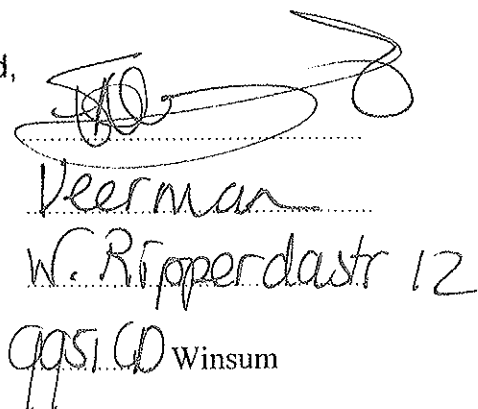 d,
Veerman
W. Ripperdastr 12
9951 CD Winsum